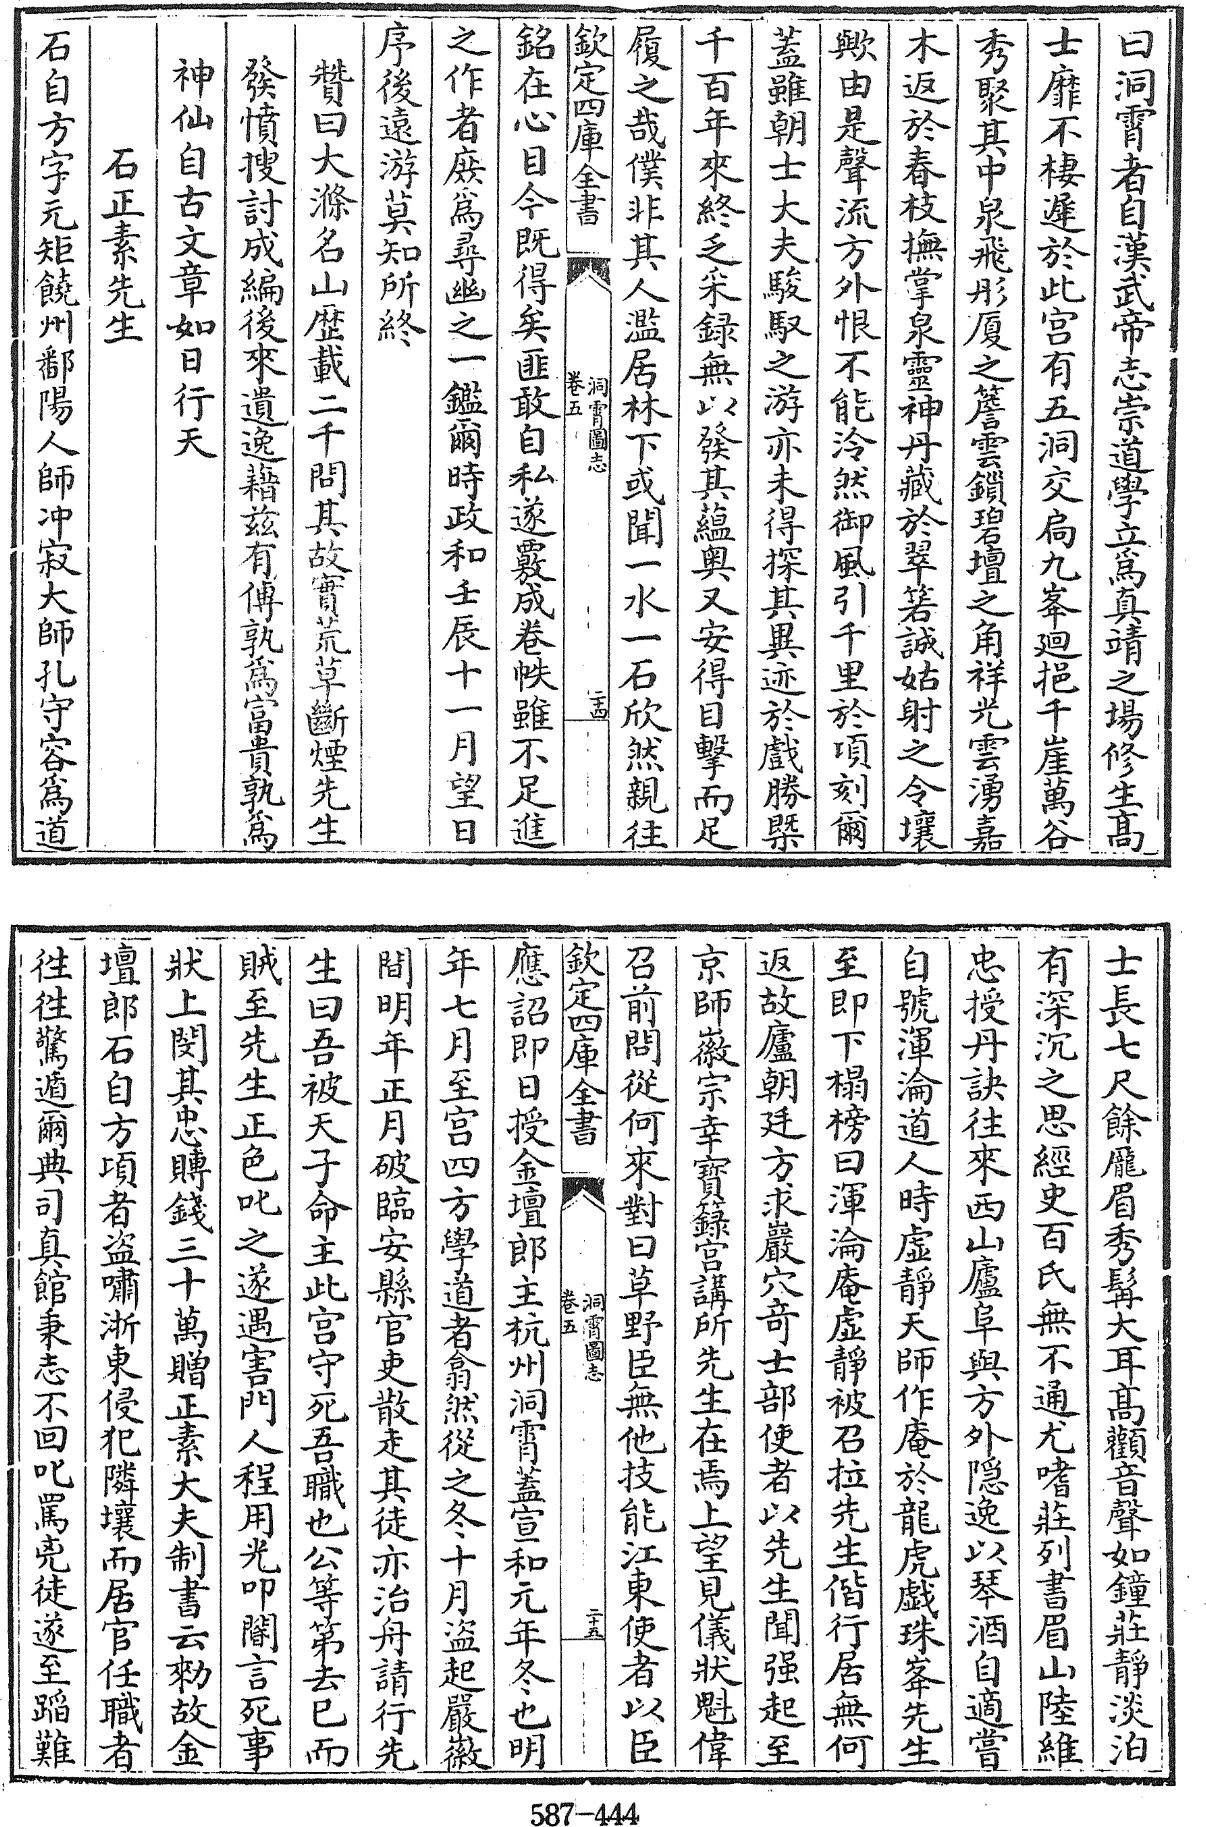 曰洞霄者自漢武帝志崇道學立爲真靖之場修生髙
士靡不棲遲於此宫有五洞交扃九峯廻挹千崖萬谷
秀聚其中泉飛彤厦之簷雲鎖碧壇之角祥光雲湧嘉
木返於春枝撫掌泉靈神丹藏於翠箬誠姑射之令壤
歟由是聲流方外恨不能泠然御風引千里於項刻爾
蓋雖朝士大夫駿馭之游亦未得探其異迹於戲勝槩
千百年來終乏采録無以發其藴奥又安得目擊而足
履之哉僕非其人濫居林下或聞一水一石欣然親往
欽定四庫全書
洞霄圖志
卷五
二十四
銘在心目今既得矣匪敢自私遂覈成卷帙雖不足進
之作者庶爲尋幽之一鑑爾時政和壬辰十一月望日
序後遠游莫知所終
贊曰大滌名山歴載二千問其故實荒草斷煙先生
發憤搜討成編後來遺逸藉兹有傳孰爲富貴孰爲
神仙自古文章如日行天
石正素先生
石自方字元矩饒州鄱陽人師冲寂大師孔守容爲道
士長七尺餘龎眉秀髯大耳髙顴音聲如鐘莊靜淡泊
有深沉之思經史百氏無不通尤嗜莊列書眉山陸維
忠授丹訣往來西山廬阜與方外隠逸以琴酒自適嘗
自號渾淪道人時虚靜天師作庵於龍虎戯珠峯先生
至即下榻榜曰渾淪庵虚靜被召拉先生偕行居無何
返故廬朝廷方求巖穴竒士部使者以先生聞强起至
京師徽宗幸寶籙宫講所先生在焉上望見儀狀魁偉
召前問從何來對曰草野臣無他技能江東使者以臣
欽定四庫全書
洞霄圖志
卷五
二十五
應詔即日授金壇郎主杭州洞霄蓋宣和元年冬也明
年七月至宫四方學道者翕然從之冬十月盗起嚴徽
間明年正月破臨安縣官吏散走其徒亦治舟請行先
生曰吾被天子命主此宫守死吾職也公等第去已而
賊至先生正色叱之遂遇害門人程用光叩閽言死事
狀上閔其忠賻錢三十萬贈正素大夫制書云勑故金
壇郎石自方項者盗嘯浙東侵犯隣壤而居官任職者
往往驚遁爾典司真館秉志不回叱罵兇徒遂至蹈難
587-444